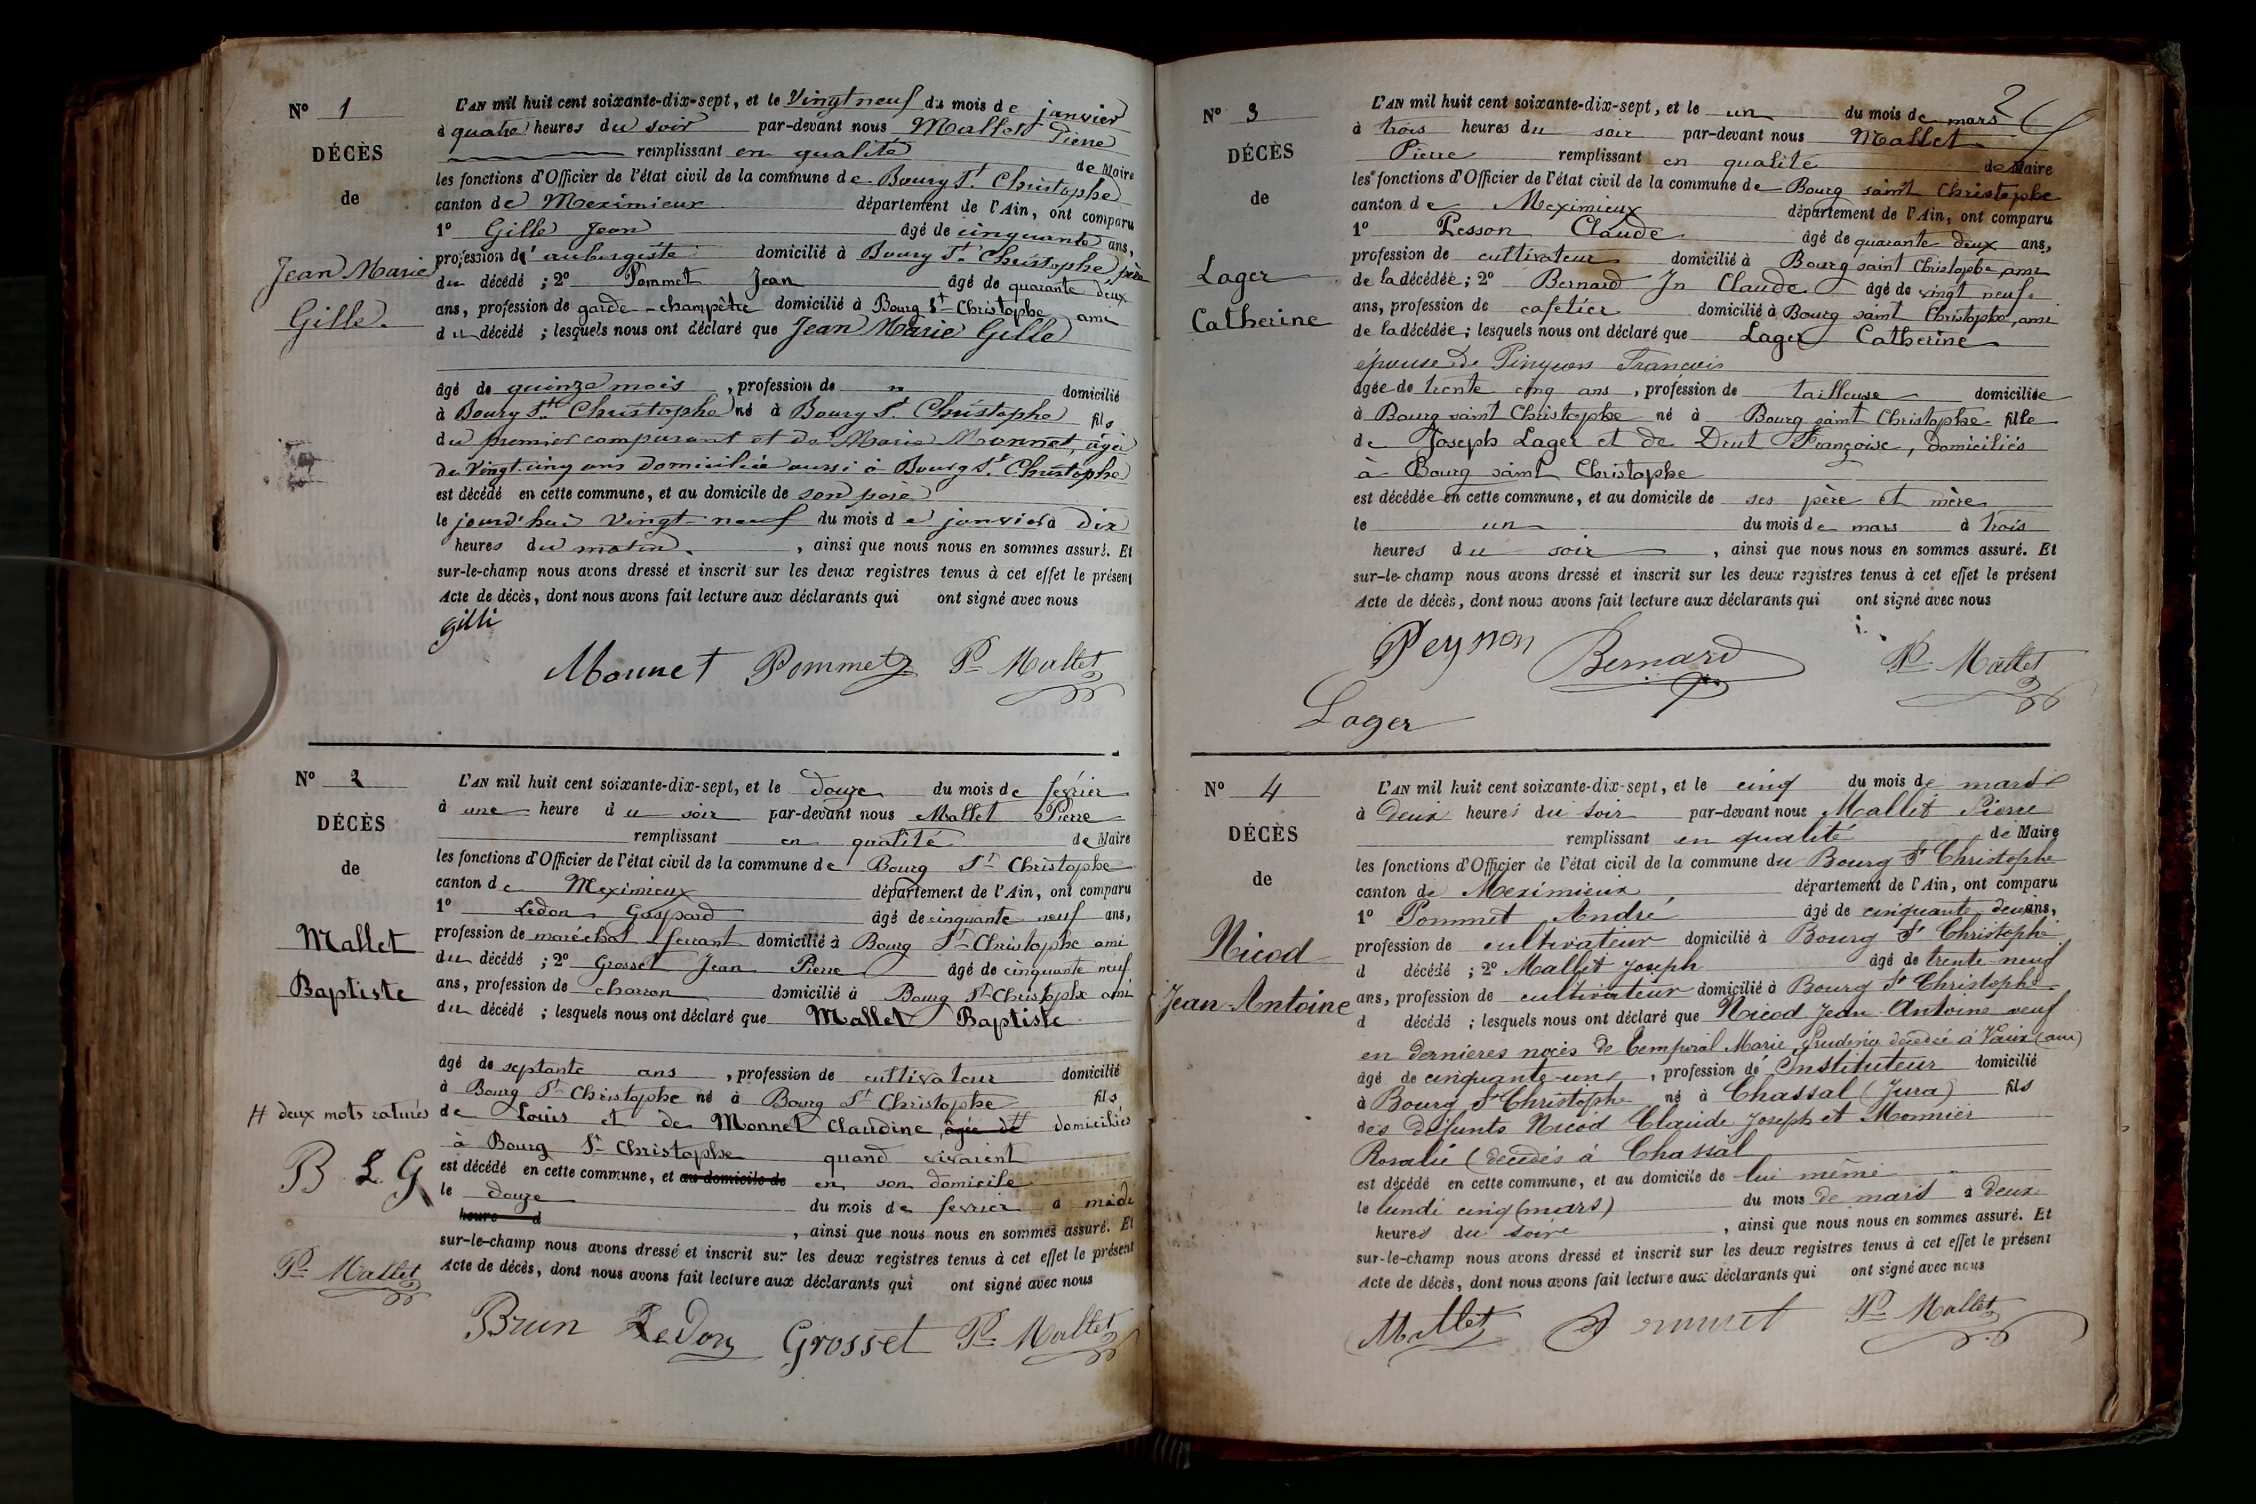 N° 1
DÉCÈS
de
Jean Marie
Gille.
L'AN mil huit cent soixante-dix-sept, et le Vingt neuf du mois de janvier
à quatre heures du soir par-devant nous Mallet Pierre
remplissant en qualité de Maire
les fonctions d'Officier de l'état civil de la commune de Bourg St Christophe
canton de Meximieux département de l'Ain, ont comparu
1° Gille Jean âgé de cinquante ans,
profession d' aubergiste domicilié à Bourg St Christophe père
du décédé ; 2° Pommet Jean âgé de quarante deux
ans, profession de garde-champêtre domicilié à Bourg St Christophe ami
du décédé ; lesquels nous ont déclaré que Jean Marie Gille
âgé de quinze mois , profession de domicilié
à Bourg St Christophe né à Bourg St Christophe fils
du premier comparant et de Marie Monnet, âgée
de Vingt-cinq ans domiciliée aussi à Bourg St Christophe
est décédé en cette commune, et au domicile de son père
le jourd'hui vingt-neuf du mois de janvier à dix
heures du matin. , ainsi que nous nous en sommes assuré. Et
sur-le-champ nous avons dressé et inscrit sur les deux registres tenus à cet effet le présent
Acte de décès, dont nous avons fait lecture aux déclarants qui ont signé avec nous
gilli
Mounet Pommet Pre Mallet
N° 2
DÉCÈS
de
Mallet
Baptiste
# deux mots raturés
B L G
Pre Mallet
L'AN mil huit cent soixante-dix-sept, et le douze du mois de février
à une heure du soir par-devant nous Mallet Pierre
remplissant en qualité de Maire
les fonctions d'Officier de l'état civil de la commune de Bourg St Christophe
canton de Meximieux département de l'Ain, ont comparu
1° Ledon Gaspard âgé de cinquante neuf ans,
profession de maréchal ferrant domicilié à Bourg St Christophe ami
du décédé ; 2° Grosset Jean Pierre âgé de cinquante neuf
ans, profession de charron domicilié à Bourg St Christophe ami
du décédé ; lesquels nous ont déclaré que Mallet Baptiste
âgé de septante ans , profession de cultivateur domicilié
à Bourg St Christophe né à Bourg St Christophe fils
de Louis et de Monnet Claudine, âgée de # domiciliés
à Bourg St Christophe quand vivaient
est décédé en cette commune, et au domicile de en son domicile
le douze du mois de fevrier à midi
heure d , ainsi que nous nous en sommes assuré. Et
sur-le-champ nous avons dressé et inscrit sur les deux registres tenus à cet effet le présent
Acte de décès, dont nous avons fait lecture aux déclarants qui ont signé avec nous
Brun Ledon Grosset Pre Mallet
2
N° 3
DÉCÈS
de
Lager
Catherine
L'AN mil huit cent soixante-dix-sept, et le un du mois de mars
à trois heures du soir par-devant nous Mallet
Pierre remplissant en qualité de Maire
les fonctions d'Officier de l'état civil de la commune de Bourg saint Christophe
canton de Meximieux département de l'Ain, ont comparu
1° Pesson Claude âgé de quarante deux ans,
profession de cultivateur domicilié à Bourg saint Christophe ami
de la décédée ; 2° Bernard Jn Claude âgé de vingt neuf
ans, profession de cafetier domicilié à Bourg saint Christophe, ami
de la décédée ; lesquels nous ont déclaré que Lager Catherine
épouse de Pingeon François
âgée de trente cinq ans , profession de tailleuse domiciliée
à Bourg saint Christophe né à Bourg saint Christophe fille
de Joseph Lager et de Drut Françoise, domiciliés
à Bourg saint Christophe
est décédée en cette commune, et au domicile de ses père et mère
le un du mois de mars à trois
heures du soir , ainsi que nous nous en sommes assuré. Et
sur-le-champ nous avons dressé et inscrit sur les deux registres tenus à cet effet le présent
Acte de décès, dont nous avons fait lecture aux déclarants qui ont signé avec nous
Peysson Bernard Pre Mallet
Lager
N° 4
DÉCÈS
de
Nicod
Jean-Antoine
L'AN mil huit cent soixante-dix-sept, et le cinq du mois de mars
à deux heures du soir par-devant nous Mallet Pierre
remplissant en qualité de Maire
les fonctions d'Officier de l'état civil de la commune du Bourg St Christophe
canton de Meximieux département de l'Ain, ont comparu
1° Pommet André âgé de cinquante deux ans,
profession de cultivateur domicilié à Bourg St Christophe
d décédé ; 2° Mallet Joseph âgé de trente-neuf
ans, profession de cultivateur domicilié à Bourg St Christophe
d décédé ; lesquels nous ont déclaré que Nicod Jean-Antoine veuf
en dernières noces de Temporal Marie décédée à Vaux (ain)
âgé de cinquante-un , profession d' Instituteur domicilié
à Bourg St Christophe né à Chassal (Jura) fils
des défunts Nicod Claude Joseph et Monnier
Rosalie (décédés à Chassal
est décédé en cette commune, et au domicile de lui même
le lundi cinq (mars) du mois de mars à deux
heures du soir , ainsi que nous nous en sommes assuré. Et
sur-le-champ nous avons dressé et inscrit sur les deux registres tenus à cet effet le présent
Acte de décès, dont nous avons fait lecture aux déclarants qui ont signé avec nous
Mallet Pommet Pre Mallet